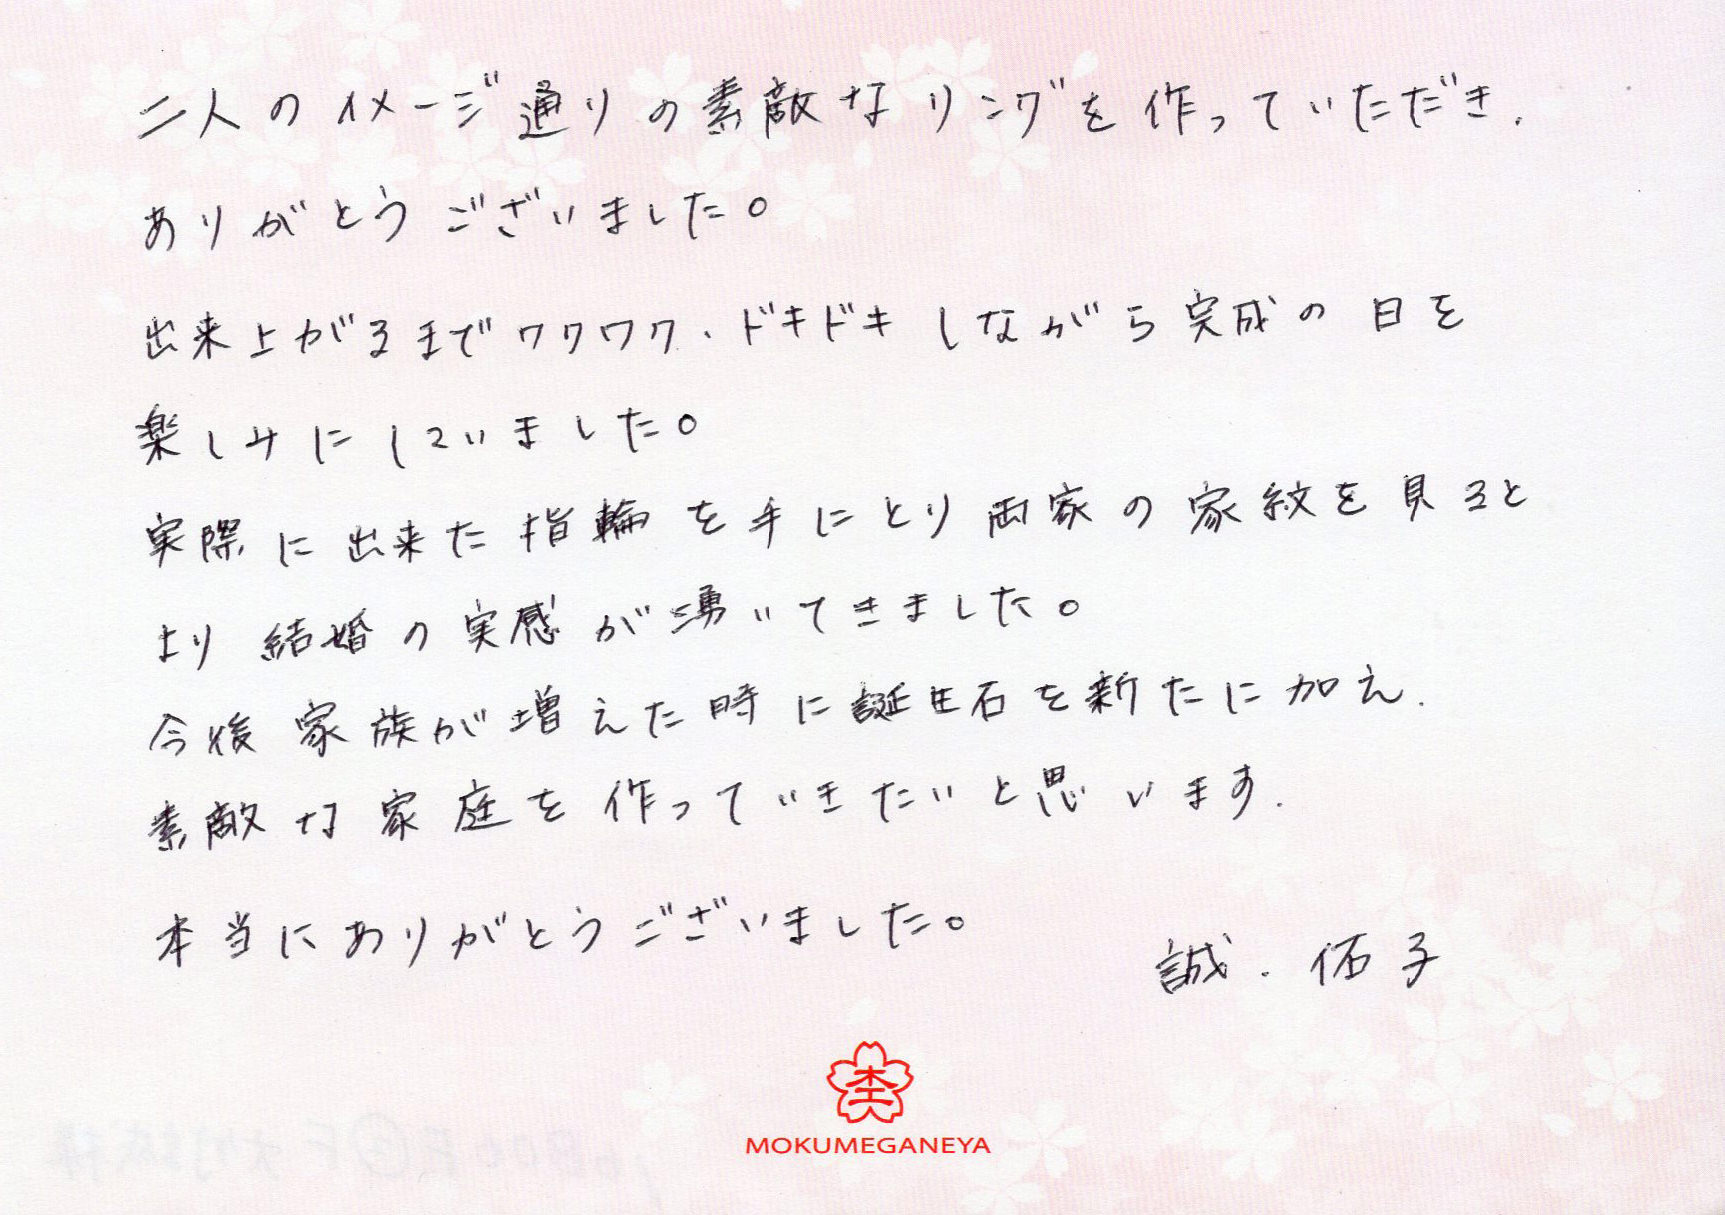 二人のイメージ通りの素敵なリングを作っていただき、
ありがとうございました。
出来上がるまでワクワク、ドキドキしながら完成の日を
楽しみにしていました。
実際に出来た指輪を手にとり両家の家紋を見ると
より結婚の実感が湧いてきました。
今後家族が増えた時に誕生石を新たに加え、
素敵な家庭を作っていきたいと思います。
本当にありがとうございました。
誠、佑子
杢
MOKUMEGANEYA